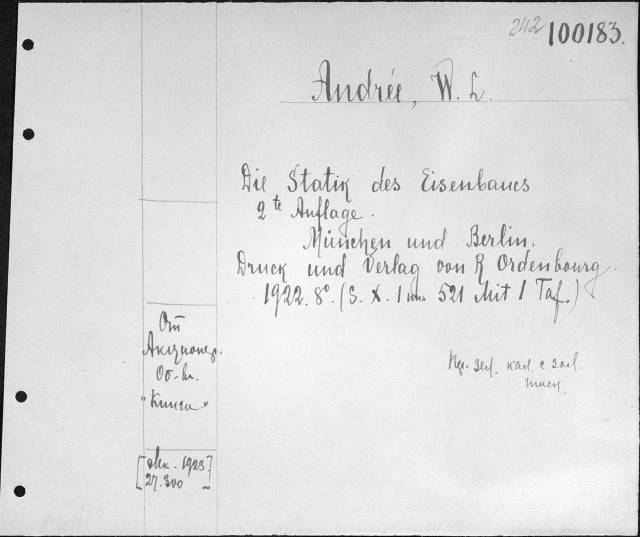 242 100183.
Andrée, W. L.
Die Statik des Eisenbaues
2te Auflage.
München und Berlin.
Druck und Verlag von R Ordenbourg.
1922. 8°. (S. X. 1 521 Mit 1 Taf.)
От
Акционер.
Об-ва
"Книга"
Пер. зел. кал. с зол.
тисн.
[дек. 1923]
27.300